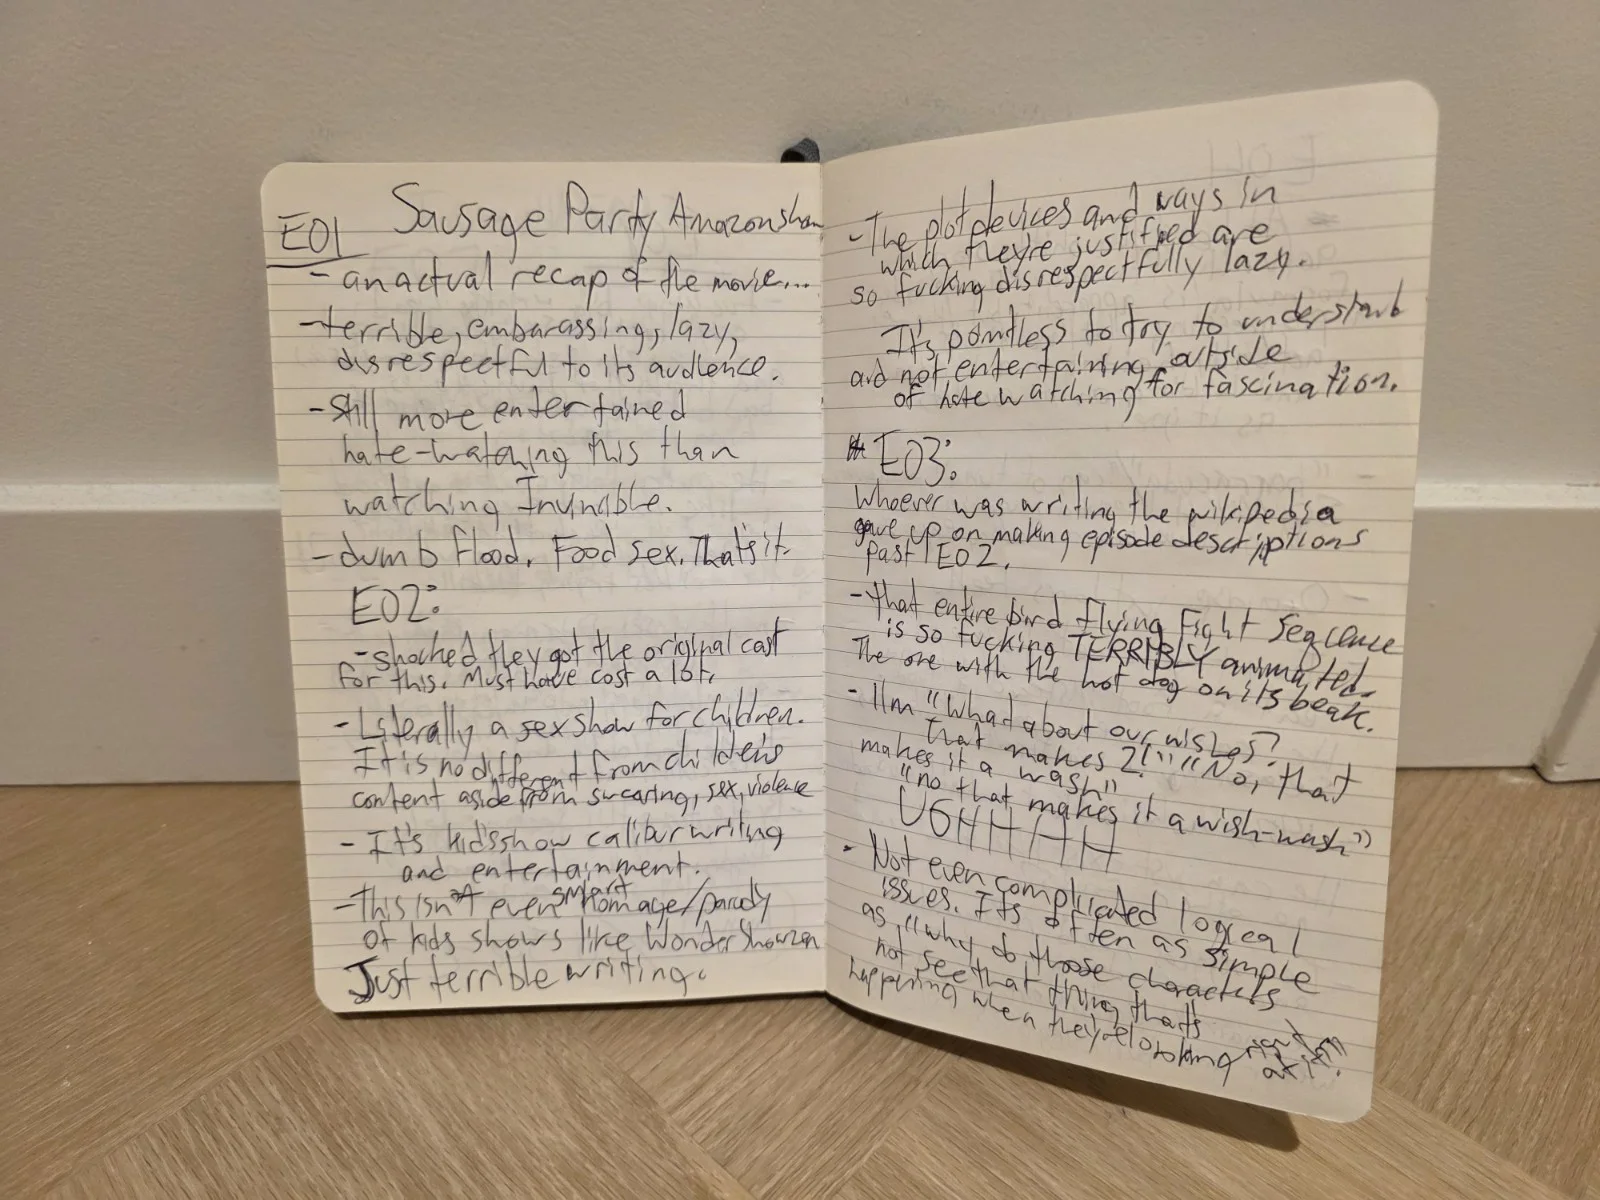 Sausage Party Amazon show
E01
- an actual recap of the movie...
- terrible, embarassing, lazy,
disrespectful to its audience.
- Still more entertained
hate-watching this than
watching Invincible.
- dumb flood. Food sex. That's it.
E02:
- shocked they got the original cast
for this. Must have cost a lot.
- Literally a sex show for children.
It is no different from children's
content aside from swearing, sex, violence
- It's kids show calibur writing
and entertainment.
- This isn't even smart homage/parody
of kids shows like Wonder Showzen
Just terrible writing.
- The plot devices and ways in
which they're justified are
so fucking disrespectfully lazy.
It's pointless to try to understand
and not entertaining outside
of hate watching for fascination.
E03:
Whoever was writing the wikipedia
gave up on making episode descriptions
past E02.
- that entire bird flying fight sequence
is so fucking TERRIBLY animated.
The one with the hot dog on its beak.
- 11m "What about our wishes?
That makes 2!" "No, that
makes it a wash"
"no that makes it a wish-wash"
UGHHHHH
- Not even complicated logical
issues. It's often as simple
as "why do those characters
not see that thing that's
happening when they're looking right
at it?"